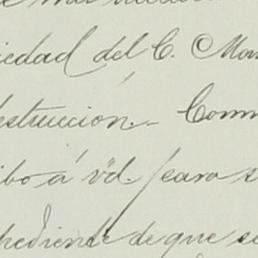 iedad del C. Man
strucción.- Comm
ibo á vd. para s
pediente de que se